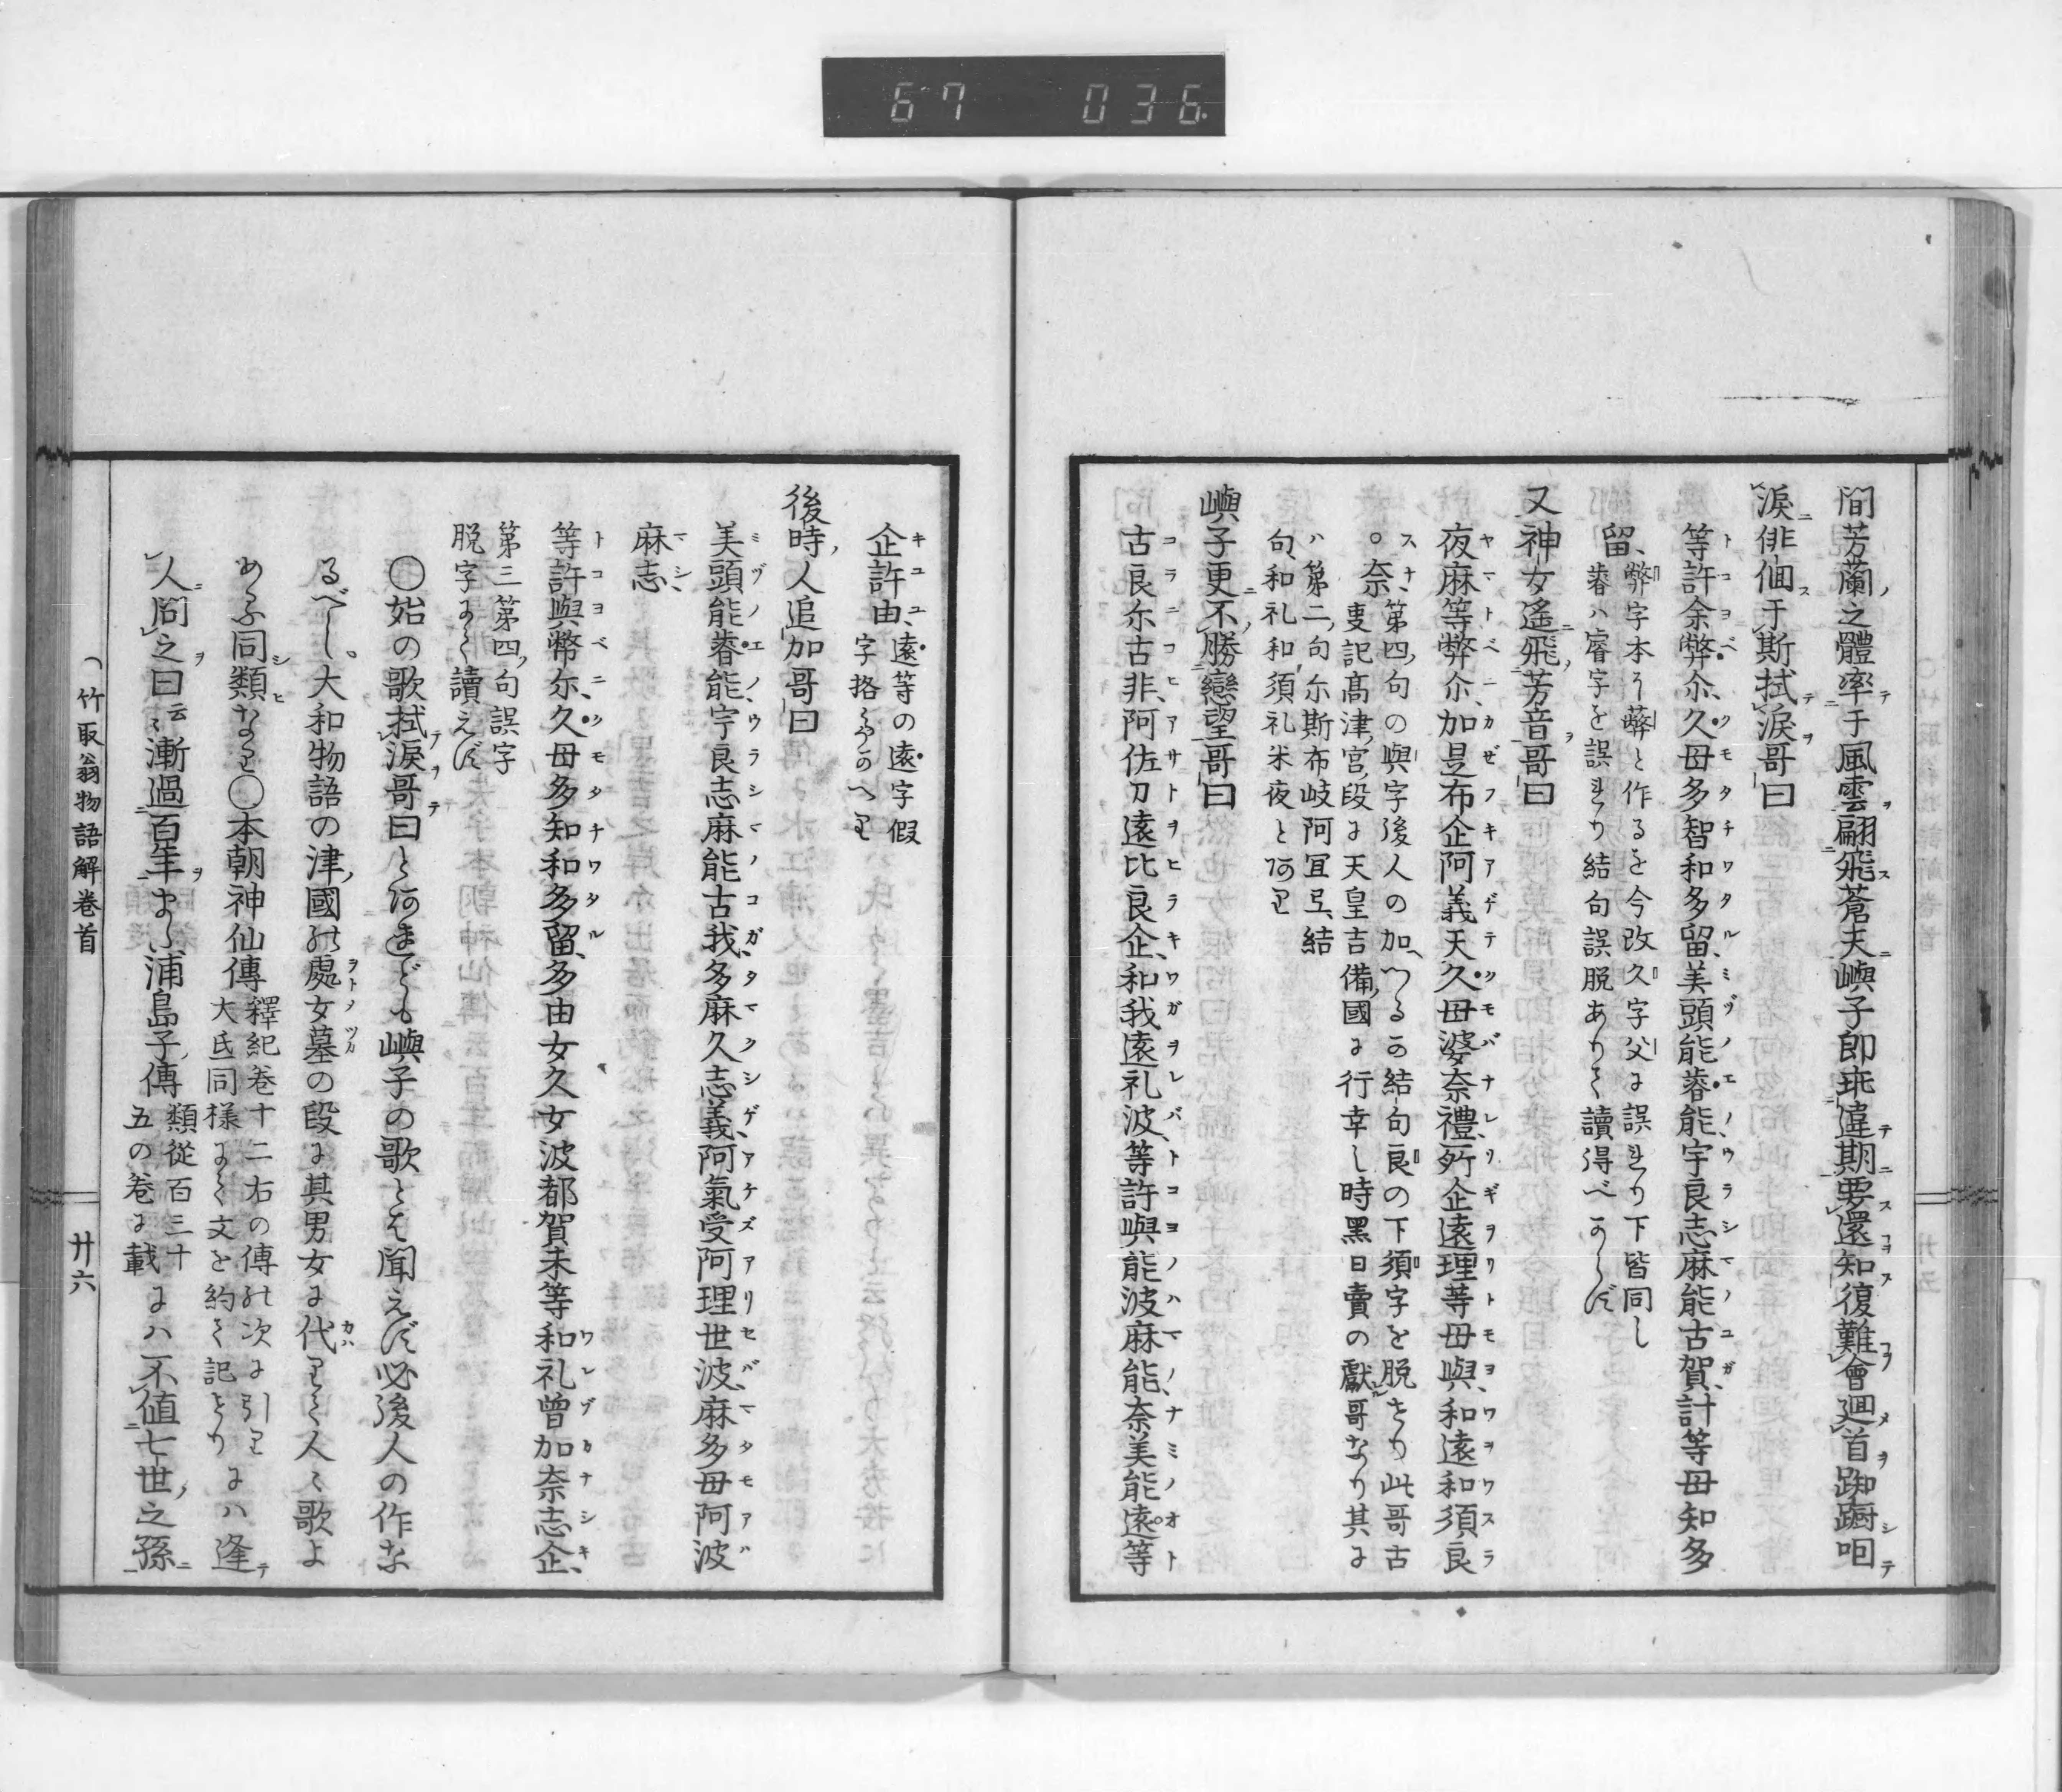 67 036
間芳蘭之體率于風雲翩飛蒼天嶼子即乖違期要還知復難會廻首踟蹰咽
涙俳佪于斯拭涙哥曰
等許余弊尒、久母多智和多留、美頭能蓉能、宇良志麻能古賀、計等母知多
留、
弊字本ヲ薜と作るを今改久字父に誤れり下皆同し
蓉ハ睿字を誤れり結句誤脱ありて讀得べからず
又神女遙飛芳音哥曰
夜麻等弊尒、加是布企阿義天久母婆奈禮、所企遠理等母與、和遠和須良
須奈、
第四句の與字後人の加へつるか結句良の下須字を脱せり此哥古
事記高津宮段に天皇吉備國に行幸し時黒日賣の獻哥なり其に
ハ第二句尓斯布岐阿冝弖、結
句、和礼和須礼米夜と阿り
嶼子更不勝戀望哥曰
古良尓古非、阿佐刀遠比良企、和我遠礼波、等許與能波麻能、奈美能遠等
企許由、
遠等の遠字假
字格たがへり
後時人追加哥曰
美頭能蓉能、宇良志麻能古我、多麻久志義、阿氣受阿理世波、麻多母阿波
麻志、
等許與幣尓、久母多知和多留、多由女久女波都賀未等和礼曾加奈志企、
第三第四句誤字
脱字ありて讀えず
〇始の歌拭涙哥曰と阿れども嶼子の歌とも聞えず必後人の作な
るべし。大和物語の津國の處女墓の段に其男女に代りて人々歌よ
めるふ同類なり〇本朝神仙傳
釋紀卷十二右の傳の次に引り
大氐同様にて文を約て記せり
にハ逢
人問之曰云々漸過百年まへ浦島子傳
類從百三十
五の卷に載
にハ不値七世之孫
竹取翁物語解卷首
廿六